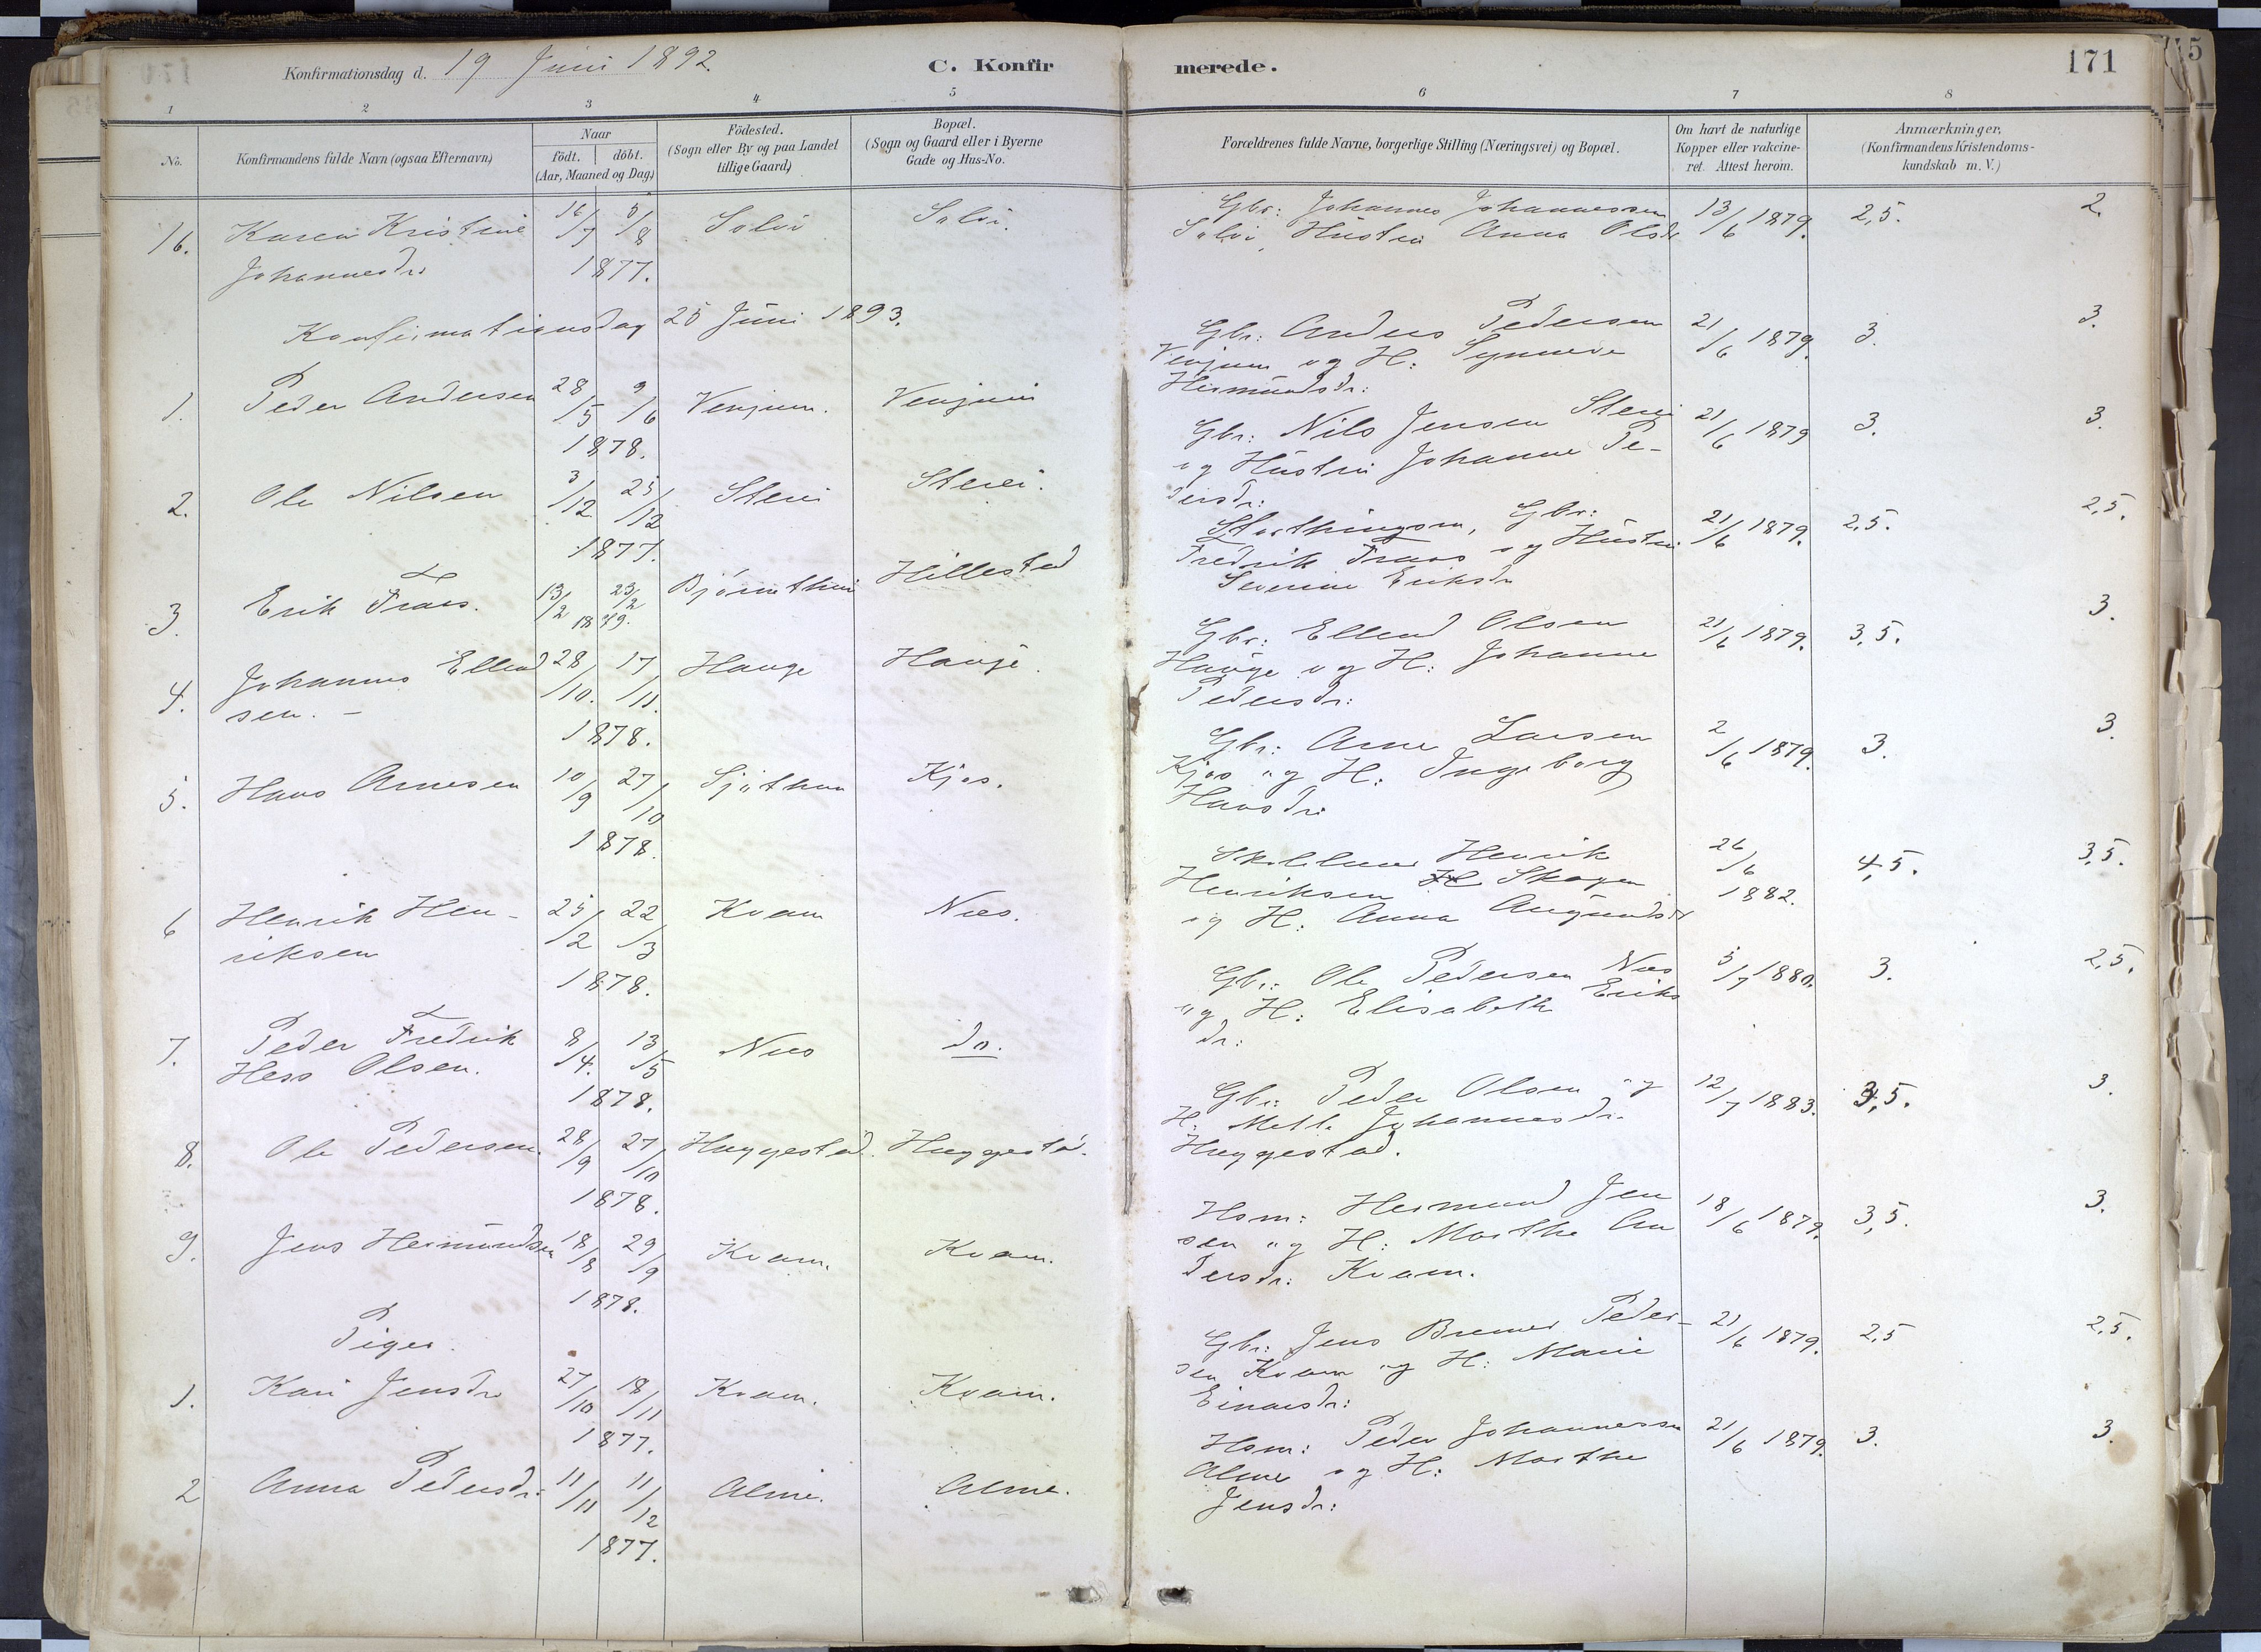 Konfirmationsdag d. 19 Juni 1892.
C. Konfirmerede.
171
1 2 3 4 5 6 7 8
No.
Konfirmandens fulde Navn (ogsaa Efternavn)
Naar
födt. döbt.
(Aar, Maaned og Dag)
Födested.
(Sogn eller By og paa Landet
tillige Gaard)
Bopæl.
(Sogn og Gaard eller i Byerne
Gade og Hus-No.
Forældrenes fulde Navne, borgerlige Stilling (Næringsvei) og Bopæl.
Om havt de naturlige
Kopper eller vakcine-
ret. Attest herom.
Anmærkninger.
(Konfirmandens Kristendoms-
kundskab m. V.)
16. Karen Kristine 16/7 5/8 Solvi Solvi. Gbr: Johannes Johannessen 13/6 1879. 2,5. 2.
Johannesdr 1877. Solvi, Hustru Anna Olsdr
Konfirmationsdag 25 Juni 1893.
1. Peder Andersen 28/5 9/6 Venjum. Venjum Gbr: Anders Pedersen 21/6 1879. 3. 3.
1878. Venjum og H: Synneve
Hermundsdr:
2. Ole Nilsen 3/12 25/12 Steri Steri. Gbr: Nils Jensen Steri 21/6 1879 3. 3.
1877. og Hustru Johanne Pe-
dersdr:
3. Erik Traes. 13/2 23/2 Hillestad Storthingsm, Gbr: 21/6 1879. 2,5. 2,5.
1879. Fredrik Traes og Hustru
Severine Eriksdr
4. Johannes Ellend 28/10. 17/11. Hauge Hauge. Gbr: Ellend Olsen 21/6 1879. 3,5. 3.
sen. - 1878. Hauge og H: Johanne
Pedersdr:
5. Hans Arnesen 10/9 27/10 Kjos. Gbr: Arne Larsen 2/6 1879. 3. 3.
1878. Kjos og H: Ingeborg
Hansdr:
6 Henrik Hen- 25/2 22/3 Kvam Nes. Henrik 26/6 4,5. 3,5.
riksen 1878. Henriksen Skogen 1882.
og H: Anna
7. Peder Fredrik 8/4. 13/5 Nes do. Gbr: Ole Pedersen Nes 5/7 1880. 3. 2,5.
Hess Olsen. 1878. og H: Elisabeth Eriks
dr:
8. Ole Pedersen. 28/9 27/10 Huggestad. Huggestad. Gbr: Peder Olsen og 12/7 1883. 3,5. 3.
1878. H: Mette Johannesdr.
Huggestad.
9. Jens Hermundsen 18/8 29/9 Kvam. Kvam. Hsm: Hermund Jen 18/6 1879. 3,5. 3.
1878. sen og H: Marthe An
dersdr: Kvam.
Piger.
1. Kari Jensdr 27/10 18/11 Kvam. Kvam. Gbr: Jens Bremer Peder- 21/6 1879. 2,5 2,5.
1877. sen Kvam og H: Marie
Einarsdr:
2 Anna Pedersdr: 11/11 11/12 Alme. Alme. Hsm: Peder Johannessen 21/6 1879. 3. 3.
1877. Alme og H: Marthe
Jensdr: